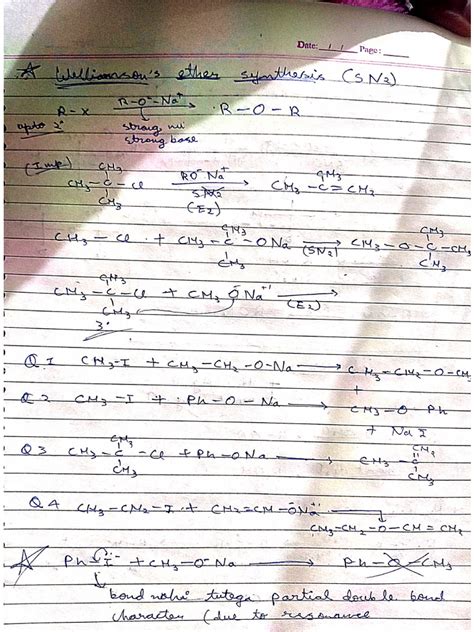 Date: / / Page:
☆ Williamson's ether synthesis (SN2)
R-X R-O⁻Na⁺ → R-O-R
upto 2° strong nu
strong base
(Imp) CH3
CH3-C-Cl RO⁻Na⁺ → CH3-C=CH2
CH3 SN2 CH3
(E2)
CH3-Cl + CH3-C-ONa → CH3-O-C-CH3
CH3 CH3 (SN2) CH3 CH3
CH3
CH3-C-Cl + CH3ŌNa⁺ →
CH3 (E2)
3°
Q.1 CH3-I + CH3-CH2-O-Na → CH3-CH2-O-CH
+
Q.2 CH3-I + Ph-O-Na → CH3-O-Ph
+ NaI
Q3 CH3-C-Cl + Ph-ONa → CH3-C
CH3 CH3 CH2 CH3
Q4 CH3-CH2-I + CH2=CH-ŌNa⁺
CH3-CH2-O-CH=CH2
☆ Ph-I + CH3-O⁻Na → Ph-O-CH3
bond nahi tutega partial double bond
character (due to resonance